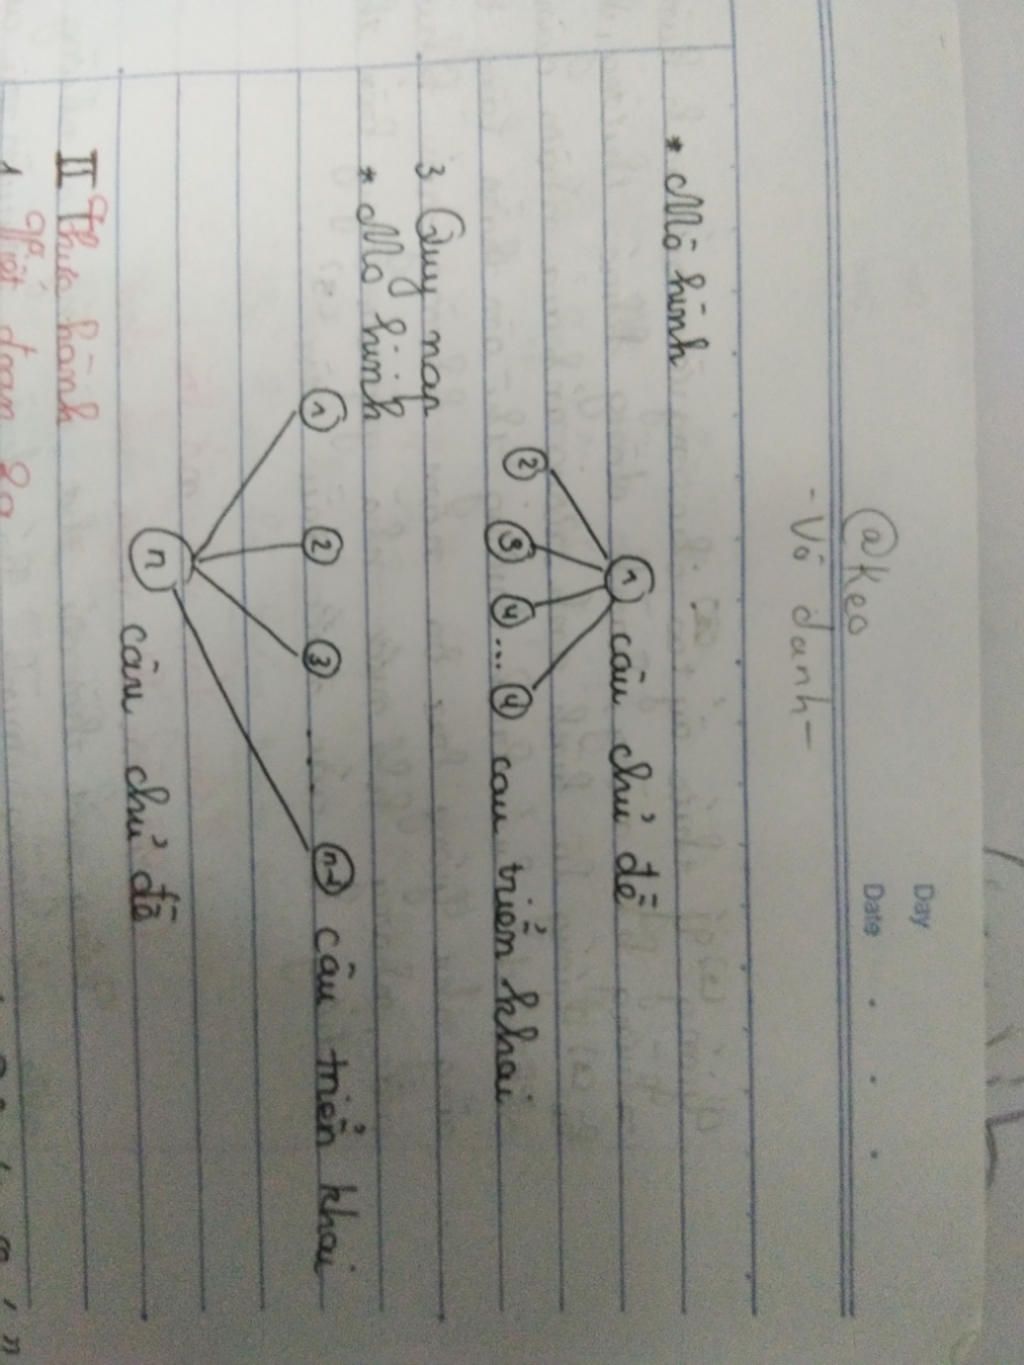 Day
@Keo
Date . . .
- Vô danh -
* Mô hình
1 câu chủ đề
2 3 4 ... 4 cau triển khai
3 Quy nap
* Mo hinh
1 2 3 .... n-1 câu triển khai
n câu chủ đề
II Thực hành
1 Viết đoạn